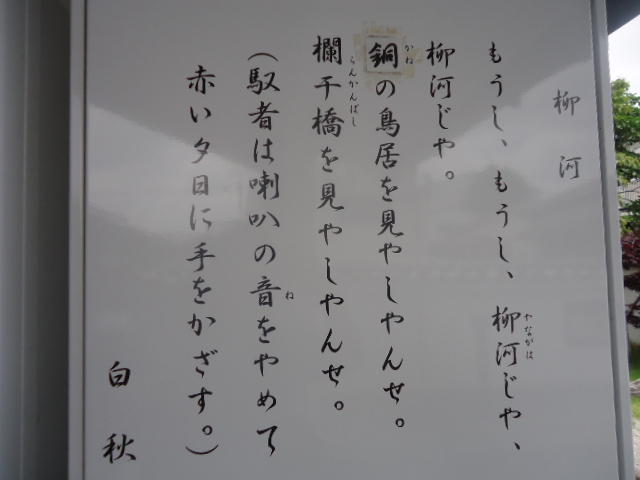 柳河
もうし、もうし、柳河じや、
やながは
柳河じや。
銅の鳥居を見やしやんせ。
かね
欄干橋を見やしやんせ。
らんかんばし
(馭者は喇叭の音をやめて
ね
赤い夕日に手をかざす。)
白秋